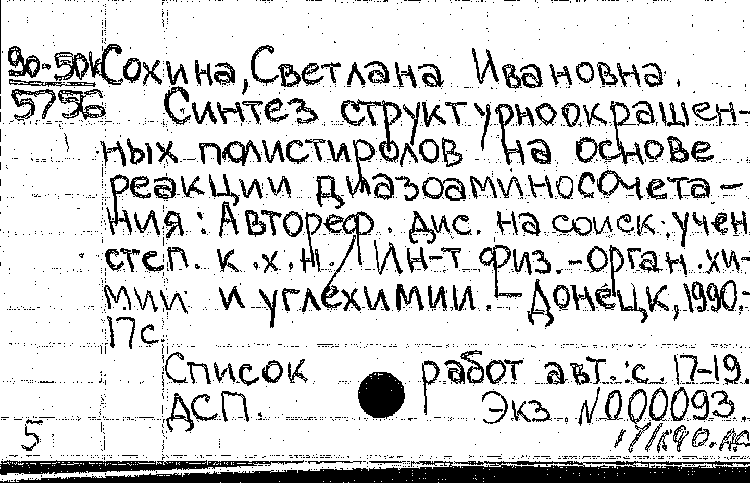 90-50к Сохина, Светлана Ивановна.
5756 Синтез структурноокрашен-
ных полистиролов на основе
реакции диазоаминосочета-
ния: Автореф. дис. на соиск. учен
степ. к.х.н. / Ин-т физ.-орган. хи-
мии и углехимии. - Донецк, 1990.-
17с
Список работ авт.: с. 17-19.
ДСП. Экз. N000093.
5